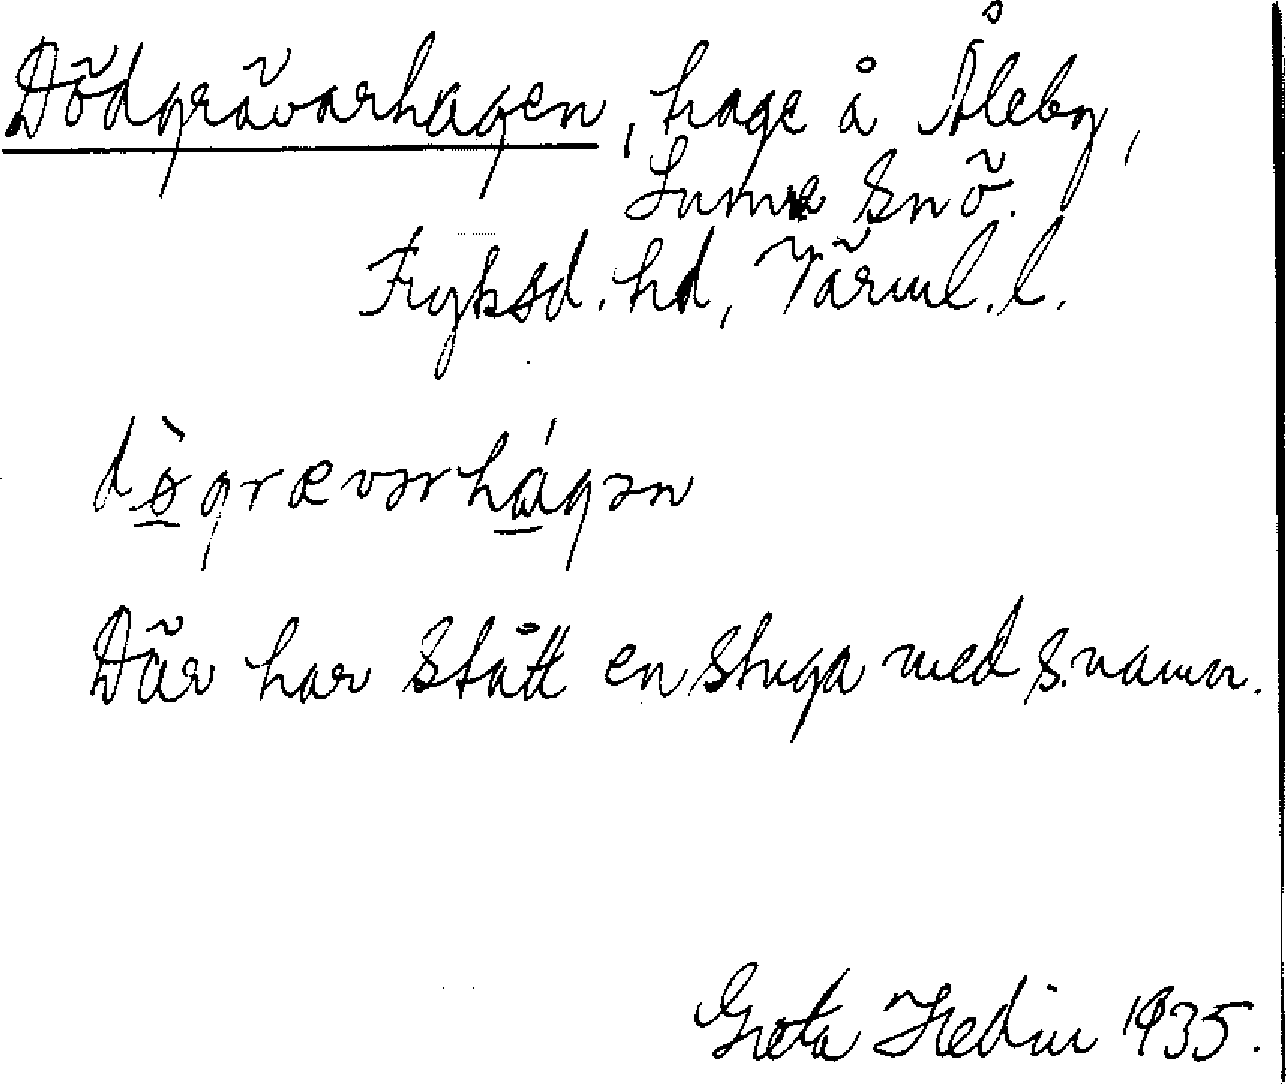 Dödgrävarhagen, hage å Åleby,
Sunne snö.
Fryksd. hd, Värml. l.
dø̀grævərhágən
Där har stått en stuga med s. namn.
Greta Hedin 1935.